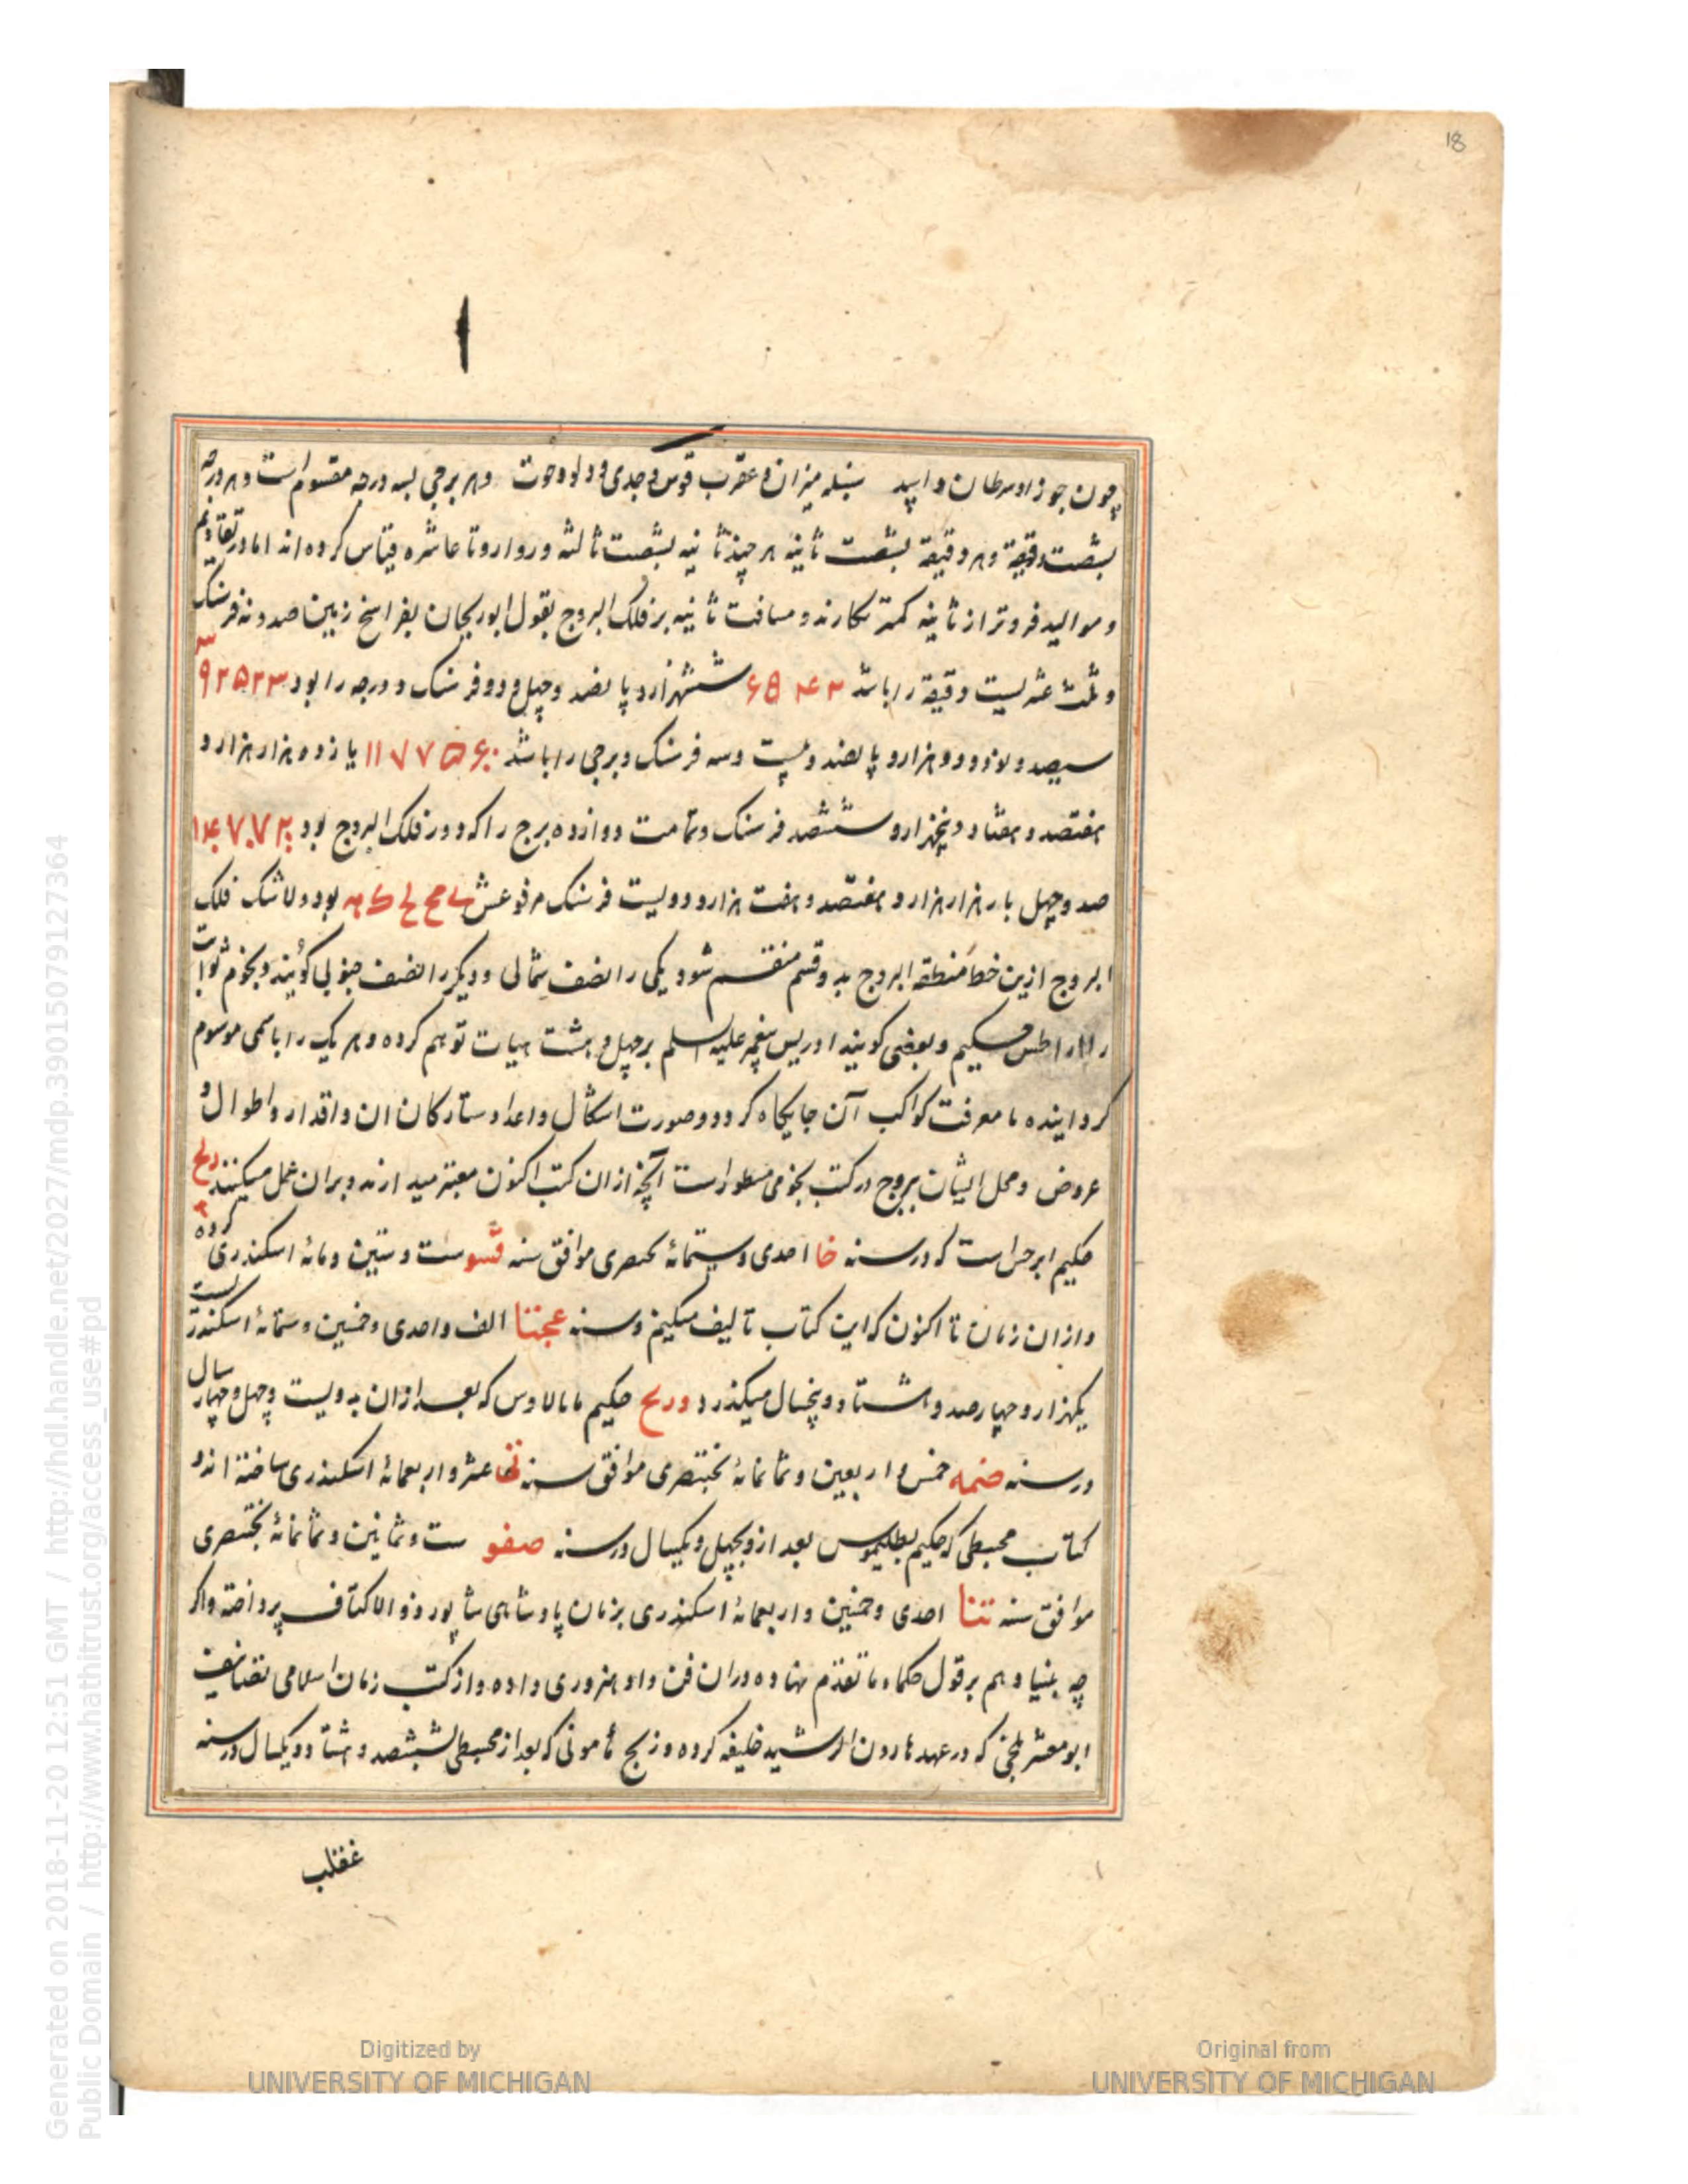 18
چون جوزا و سرطان و اسد سنبله میزان و عقرب قوس و جدی و دلو و حوت و هر برجی بسه درجه مقسوم است و هر درجه
بشصت دقیقة و هر دقیقة بشصت ثانیه هر چند ثانیه بشصت ثالثه و روا رو تا عاشره قیاس کرده‌اند اما در تقاویم
و موالید فروتر از ثانیه کمتر نکارند و مسافت ثانیه بر فلک البروج بقول ابوریحان بفراسخ زمین صد و نه فرسنک
و ثلث عشر لیست دقیقة را باشد ششهزار و پانصد و چهل و دو فرسنک و درجه را بود
سیصد و نود و دو هزار و پانصد و بیست و سه فرسنک و برجی را باشد ۱۱۷۷۵۶۰۰ یازده هزار هزار و
هفتصد و هفتاد و پنجهزار و ششصد فرسنک و تمامت دوازده برج را که دور فلک البروج بود
صد و چهل بار هزار هزار و هفتصد و هفت هزار و دویست فرسنک مرفوعش بود و لاشک فلک
البروج ازین خط منطقه البروج بدو قسم منقسم شود یکی را نصف شمالی و دیکر را نصف جنوبی کویند و نجوم ثوابت
را حکیم و بعضی کویند ادریس پیغمبر علیه السلم بر چهل و هشت هیات توهم کرده و هر یک را باسمی موسوم
کردانیده تا معرفت کواکب آن جایکاه کردد و صورت اشکال و اعداد ستارکان ان و اقدار و اطوال و
عروض و محل ایشان ببروج در کتب نجومی مسطور است آنچه از ان کتب اکنون معتبر میدارند و بران عمل میکنند زیج
حکیم ابرخس است که در سنه خا احدی و ستمائه بختنصری موافق سنه قسو ست و ستین و مائه اسکندری کرده
و از ان زمان تا اکنون که این کتاب تالیف میکنیم و سنه الف و احدی و خمسین و ستمائه اسکندری است
یکهزار و چهارصد و هشتاد و پنجسال میکذرد و زیج حکیم مامالاوس که بعد از ان بدویست و چهل و چهار سال
در سنه ضمه خمس و اربعین و ثمانمائه بختنصری موافق سنه عشر و اربعمائه اسکندری ساخته اند و
کتاب مجسطی که حکیم بطلیموس بعد از و بچهل و یکسال در سنه ضفو ست و ثمانین و ثمانمائه بختنصری
موافق سنه تنا احدی و خمسین و اربعمائه اسکندری بزمان پادشاهی شاپور ذو الاکتاف پرداخته و اکر
چه بنیاد هم بر قول حکماء ما تقدم نهاده در ان فن داد هنروری داده و از کتب زمان اسلامی تصانیف
ابو معشر بلخی که در عهد هارون الرشید خلیفه کرده و زیج مامونی که بعد از مجسطی بششصد و هشتاد و یکسال در سنه
غقلب
Generated on 2018-11-20 12:51 GMT / http://hdl.handle.net/2027/mdp.39015079127364
Public Domain / http://www.hathitrust.org/access_use#pd
Digitized by
UNIVERSITY OF MICHIGAN
Original from
UNIVERSITY OF MICHIGAN